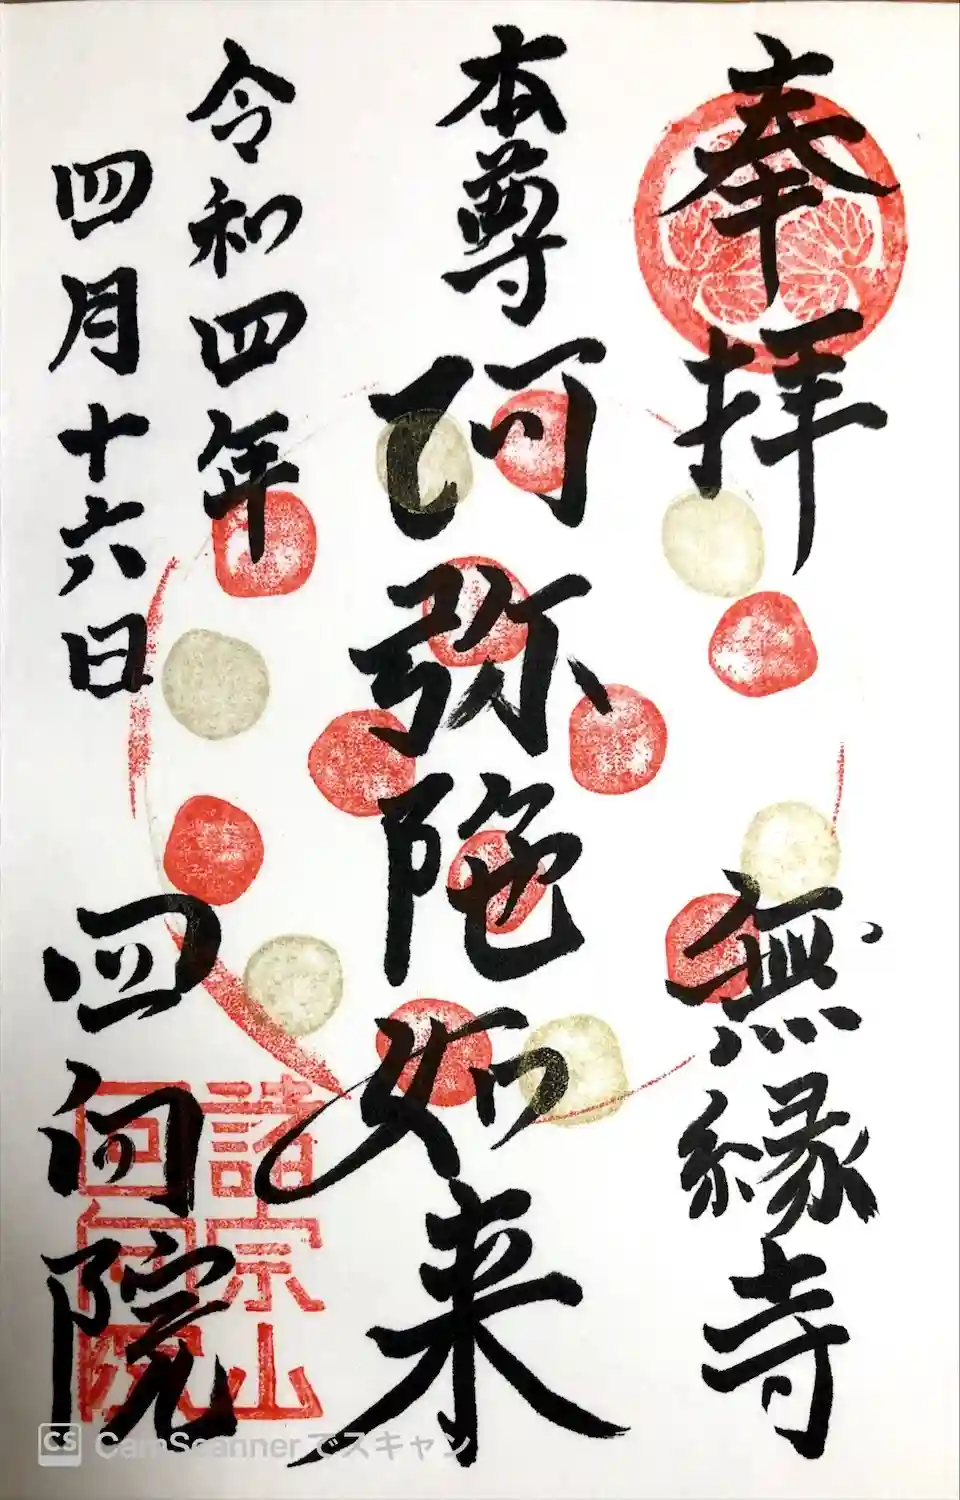 奉拝
無縁寺
本尊 阿弥陀如来
令和四年
四月十六日
回向院
諸宗山
回向院
CS CamScanner でスキャン